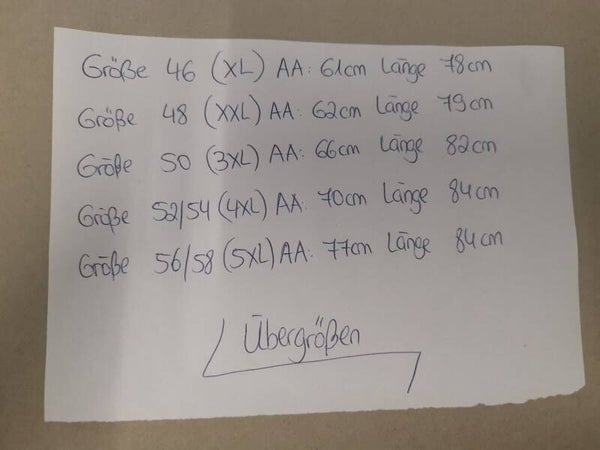 Größe 46 (XL) AA: 61cm Länge 78cm
Größe 48 (XXL) AA: 62cm Länge 79cm
Größe 50 (3XL) AA: 66cm Länge 82cm
Größe 52/54 (4XL) AA: 70cm Länge 84cm
Größe 56/58 (5XL) AA: 77cm Länge 84cm
Übergrößen